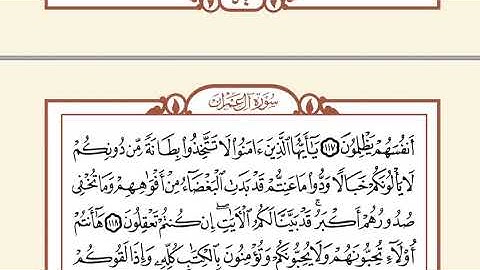 سُورَةُ آلِ عِمْرَان
أَنفُسَهُمْ يَظْلِمُونَ ١١٧ يَٰٓأَيُّهَا ٱلَّذِينَ ءَامَنُوا۟ لَا تَتَّخِذُوا۟ بِطَانَةً مِّن دُونِكُمْ
لَا يَأْلُونَكُمْ خَبَالًا وَدُّوا۟ مَا عَنِتُّمْ قَدْ بَدَتِ ٱلْبَغْضَآءُ مِنْ أَفْوَٰهِهِمْ وَمَا تُخْفِى
صُدُورُهُمْ أَكْبَرُ ۚ قَدْ بَيَّنَّا لَكُمُ ٱلْءَايَٰتِ ۖ إِن كُنتُمْ تَعْقِلُونَ ١١٨ هَٰٓأَنتُمْ
أُو۟لَآءِ تُحِبُّونَهُمْ وَلَا يُحِبُّونَكُمْ وَتُؤْمِنُونَ بِٱلْكِتَٰبِ كُلِّهِۦ وَإِذَا لَقُوكُمْ